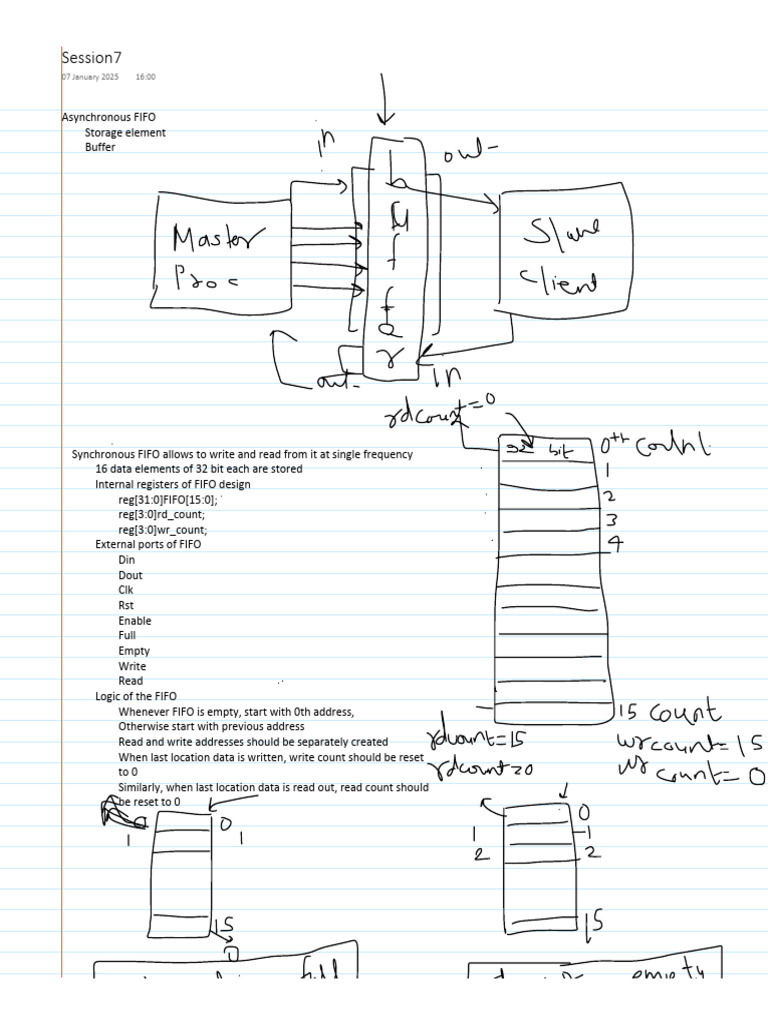 Session7
07 January 2025 16:00
Asynchronous FIFO
Storage element
Buffer
in
out
buffer
Master
Proc
Slave
Client
out
in
rdcount=0
Synchronous FIFO allows to write and read from it at single frequency
16 data elements of 32 bit each are stored
Internal registers of FIFO design
reg[31:0]FIFO[15:0];
reg[3:0]rd_count;
reg[3:0]wr_count;
External ports of FIFO
Din
Dout
Clk
Rst
Enable
Full
Empty
Write
Read
32 bit 0th count
1
2
3
4
15 count
Logic of the FIFO
Whenever FIFO is empty, start with 0th address,
Otherwise start with previous address
Read and write addresses should be separately created
When last location data is written, write count should be reset
to 0
Similarly, when last location data is read out, read count should
be reset to 0
rdcount=15
rdcount=0
wrcount=15
wr count=0
0
1 1
15
0
0
1 1
2 2
15
full
empty